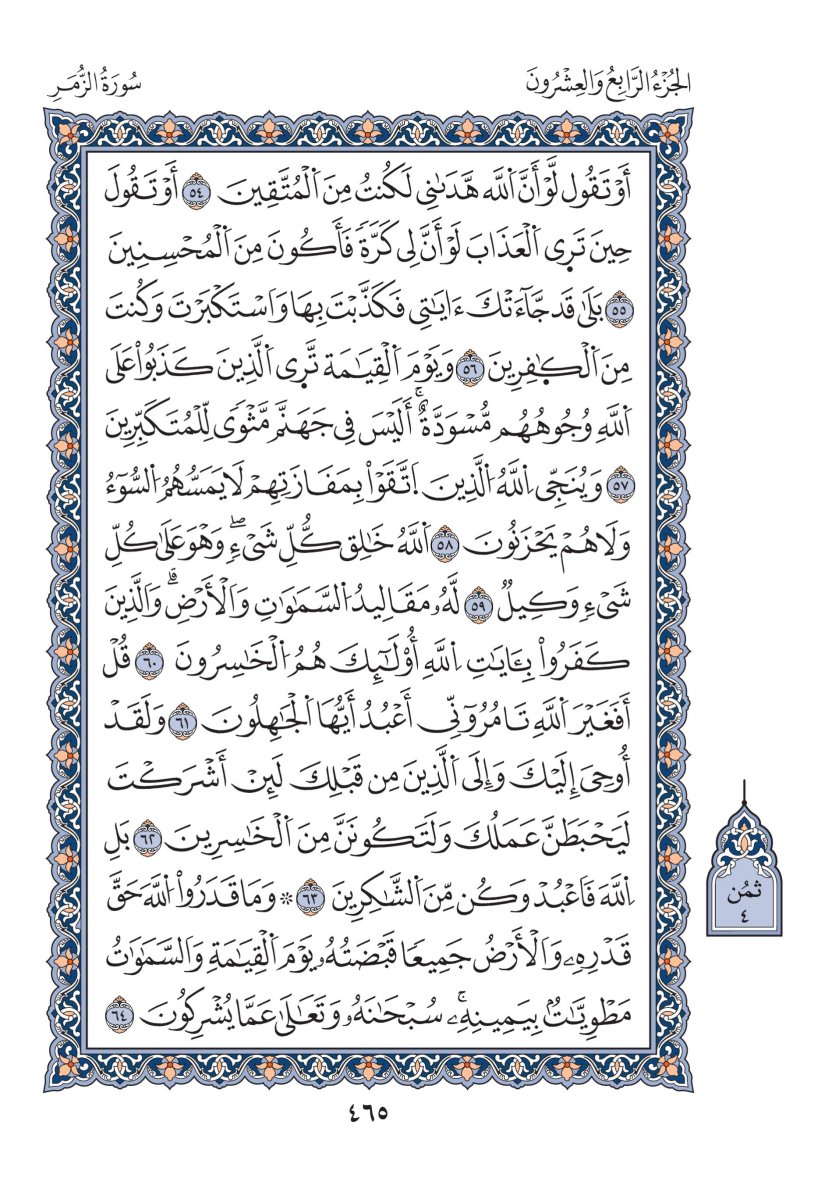 الجُزْءُ الرَّابِعُ وَالعِشْرُونَ
سُورَةُ الزُّمَرِ
أَوْ تَقُول لَّوْ أَنَّ اَ۬للَّه هَّدَىٰنِى لَكُنتُ مِنَ اَ۬لْمُتَّقِينَ ٥٤ أَوْ تَقُولَ
حِينَ تَرَى اَ۬لْعَذَابَ لَوْ أَنَّ لِى كَرَّةٗ فَأَكُونَ مِنَ اَ۬لْمُحْسِنِينَ
٥٥ بَلَىٰ قَد جَّآءَتْكَ ءَايَٰتِى فَكَذَّبْتَ بِهَا وَاَسْتَكْبَرْتَ وَكُنتَ
مِنَ اَ۬لْكٰ۪فِرِينَ ٥٦ وَيَوْمَ اَ۬لْقِيَٰمَة تَّرَى اَ۬لَّذِينَ كَذَبُواْ عَلَى
اَ۬للَّهِ وُجُوهُهُم مُّسْوَدَّةٌۚ أَلَيْسَ فِى جَهَنَّم مَّثْوٗى لِّلْمُتَكَبِّرِينَ
٥٧ وَيُنَجِّى اِ۬للَّهُ اُ۬لَّذِينَ اَ۪تَّقَوْاْ بِمَفَازَتِهِمْ لَا يَمَسُّهُمُ اُ۬لسُّوٓءُ
وَلَا هُمْ يَحْزَنُونَ ٥٨ اَ۬للَّهُ خَٰلِق كُّلِّ شَىْءٖۖ وَهْوَ عَلَىٰ كُلِّ
شَىْءٖ وَكِيلٞ ٥٩ لَّهُۥ مَقَالِيدُ اُ۬لسَّمَٰوَٰتِ وَالْأَرْضِۗ وَالَّذِينَ
كَفَرُواْ بِـَٔايَٰتِ اِ۬للَّهِ أُوْلَٰٓئِكَ هُمُ اُ۬لْخَٰسِرُونَ ٦٠ قُلْ
أَفَغَيْرَ اَ۬للَّهِ تَامُرُوٓنِّى أَعْبُدُ أَيُّهَا اَ۬لْجَٰهِلُونَ ٦١ وَلَقَدْ
أُوحِىَ إِلَيْكَ وَإِلَى اَ۬لَّذِينَ مِن قَبْلِكَ لَئِنْ أَشْرَكْتَ
لَيَحْبَطَنَّ عَمَلُكَ وَلَتَكُونَنَّ مِنَ اَ۬لْخَٰسِرِينَ ٦٢ بَلِ
اِ۬للَّهَ فَاعْبُدْ وَكُن مِّنَ اَ۬لشَّٰكِرِينَ ٦٣ ۞ وَمَا قَدَرُواْ اُ۬للَّهَ حَقَّ
قَدْرِهِۦ وَالْأَرْضُ جَمِيعٗا قَبْضَتُهُۥ يَوْمَ اَ۬لْقِيَٰمَةِ وَالسَّمَٰوَٰتُ
مَطْوِيَّٰتُۢ بِيَمِينِهِۦۚ سُبْحَٰنَهُۥ وَتَعَٰلَىٰ عَمَّا يُشْرِكُونَ ٦٤
ثُمُن
٤
٤٦٥